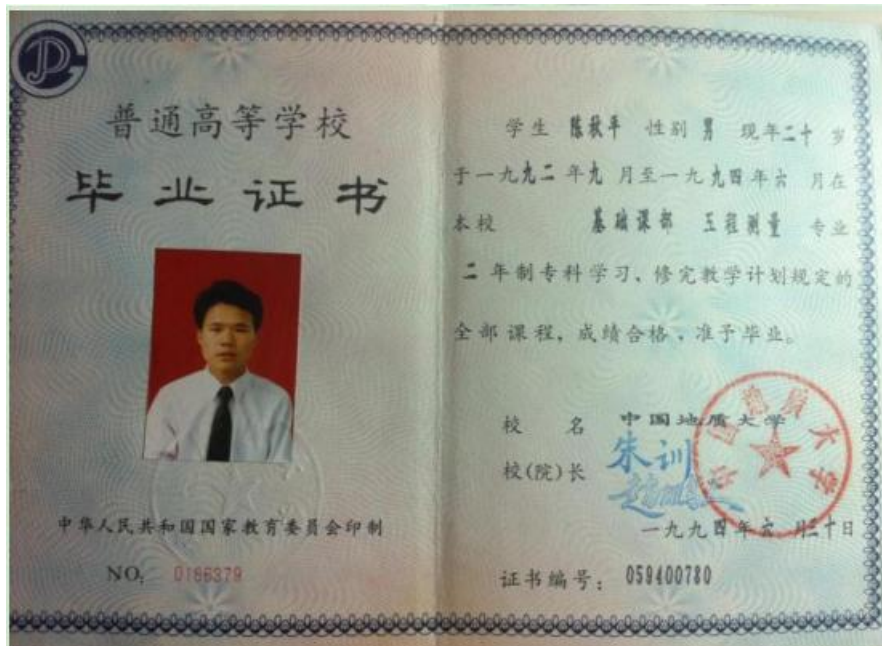 普通高等学校
毕业证书
中华人民共和国国家教育委员会印制
NO: 0166379
学生 陈秋平 性别 男 现年二十岁
于一九九二年九月至一九九四年六月在
本校 基础课部 工程测量 专业
二年制专科学习、修完教学计划规定的
全部课程，成绩合格，准予毕业。
校 名 中国地质大学
中国地质大学
校(院)长 朱训
赵鹏大
一九九四年六月三十日
证书编号： 059400780